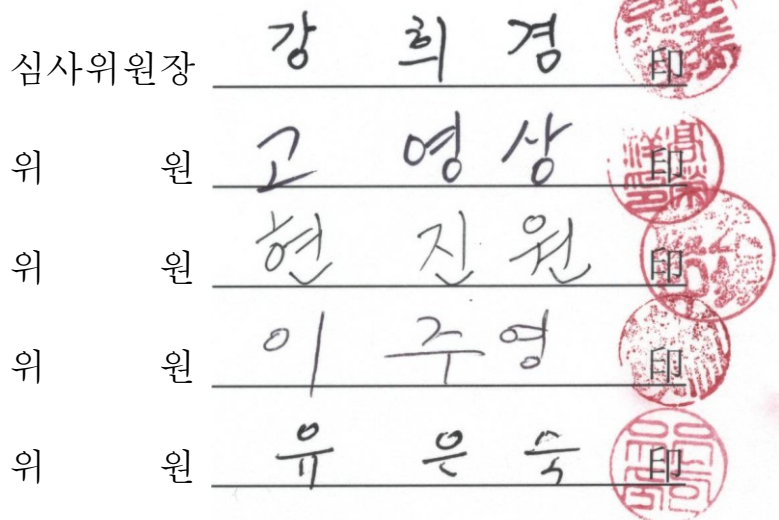 심사위원장 강 희 경 印
위 원 고 영 상 印
위 원 현 진 원 印
위 원 이 주 영 印
위 원 유 은 숙 印